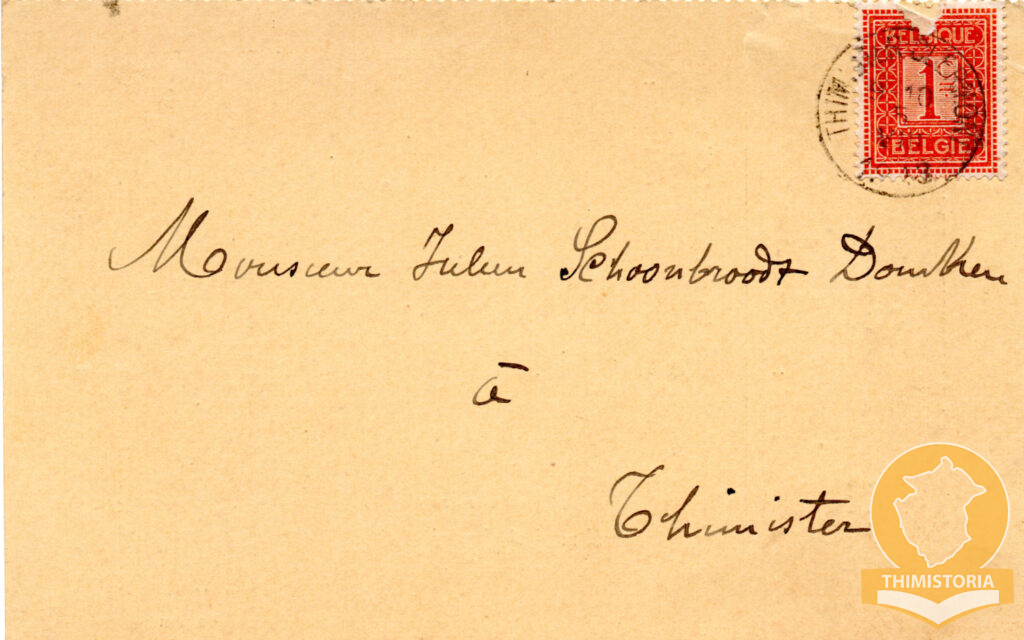 BELGIQUE
1
BELGIË
Monsieur Julien Schoonbroodt Domken
à
Thimister
THIMISTORIA